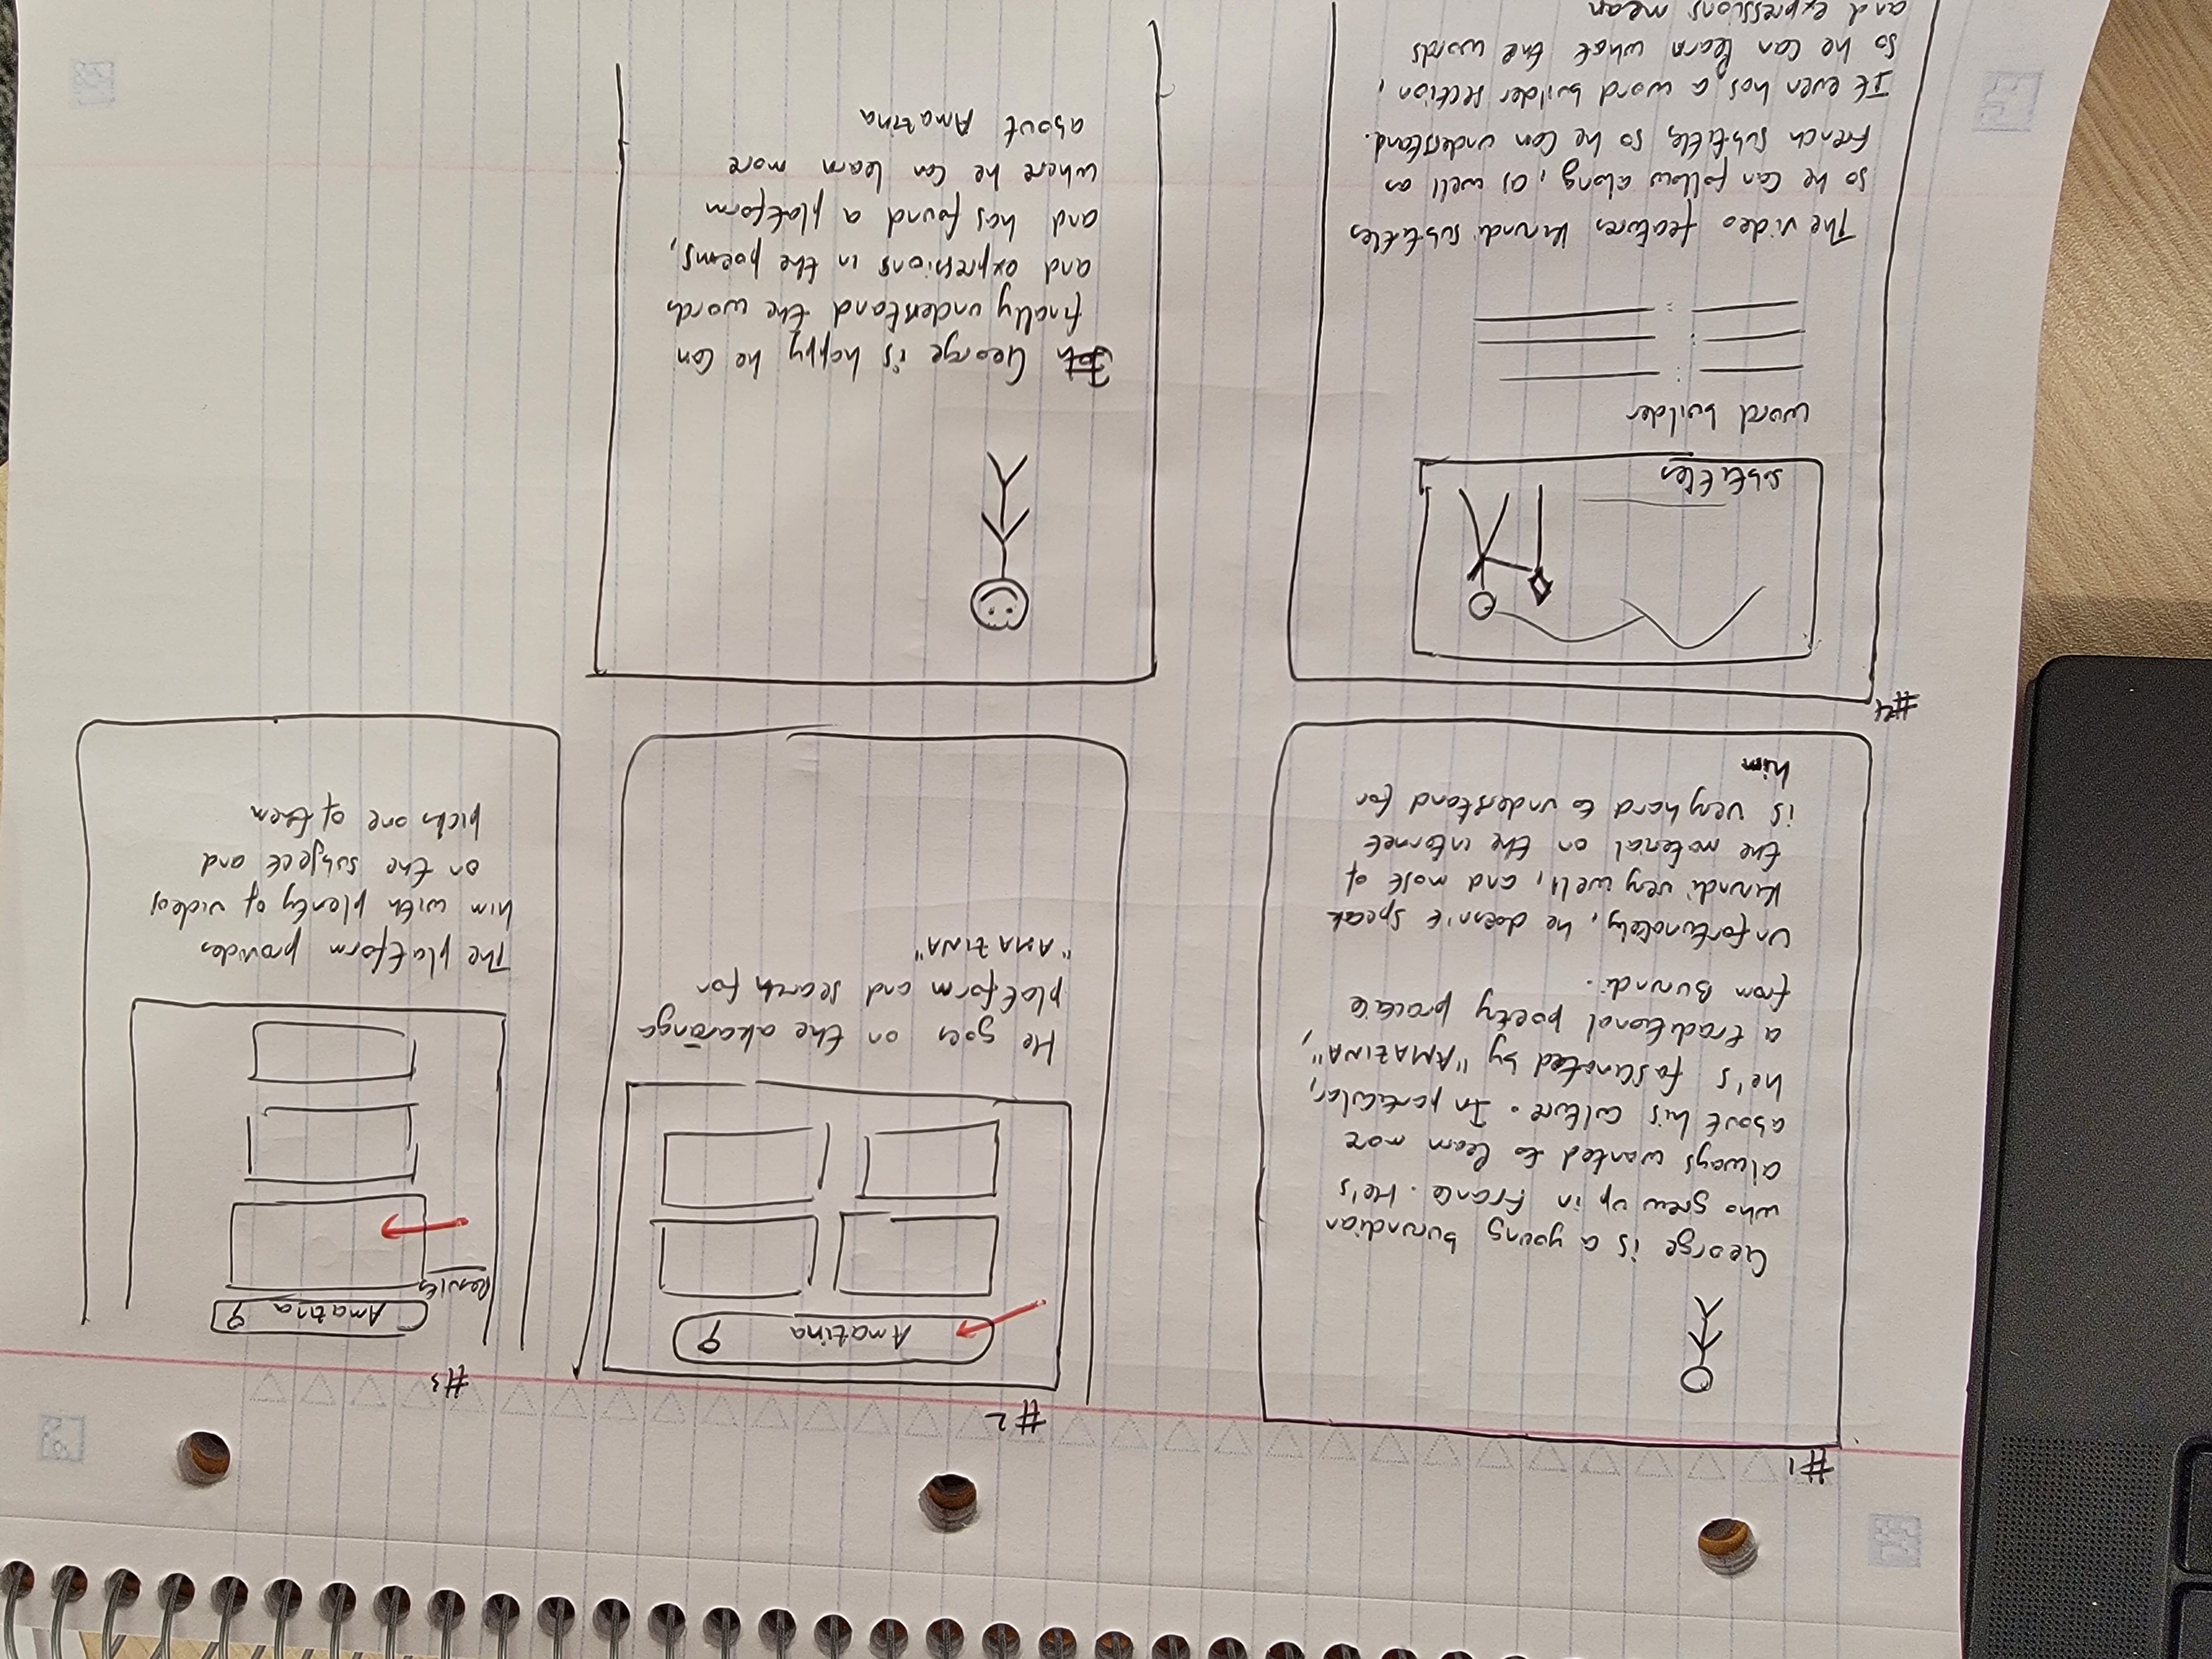 #1
George is a young burundian
who grew up in France. He's
always wanted to learn more
about his culture. In particular,
he's fascinated by "AMAZINA",
a traditional poetry practice
from Burundi.
Unfortunately, he doesn't speak
Kirundi very well, and most of
the material on the internet
is very hard to understand for
him
#2
Amazina
He goes on the akarānga
platform and search for
"AMAZINA"
#3
Amazina
Results
The platform provides
him with plenty of videos
on the subject and
picks one of them
#4
subtitles
word builder
: 
:
:
The video features Kirundi subtitles
so he can follow along, as well as
French subtitles so he can understand.
It even has a word builder section,
so he can learn what the words
and expressions mean
George is happy he can
finally understand the words
and expressions in the poems,
and has found a platform
where he can learn more
about Amazina